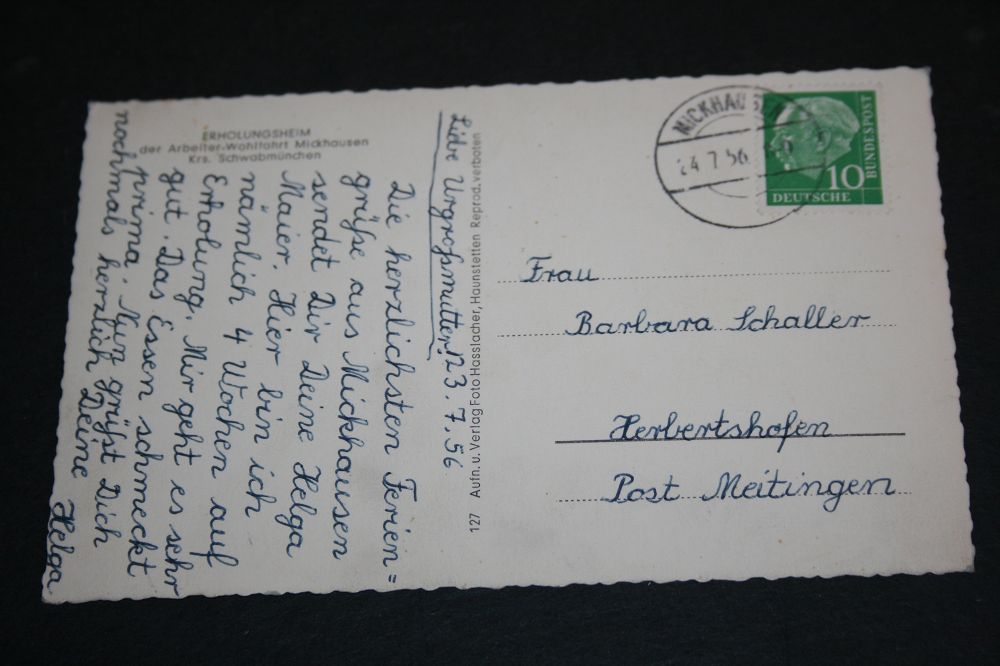 ERHOLUNGSHEIM
der Arbeiter-Wohlfahrt Mickhausen
Krs. Schwabmünchen
Liebe Urgroßmutter! 23.7.56
Die herzlichsten Ferien=
grüße aus Mickhausen
sendet Dir Deine Helga
Maier. Hier bin ich
nämlich 4 Wochen auf
Erholung. Mir geht es sehr
gut. Das Essen schmeckt
prima. Nun grüßt Dich
nochmals herzlich Deine Helga
127 Aufn. u. Verlag Foto Hasslacher, Haunstetten Reprod. verboten
MICKHAUSEN
24.7.56
10
DEUTSCHE
BUNDESPOST
Frau
Barbara Schaller
Herbertshofen
Post Meitingen